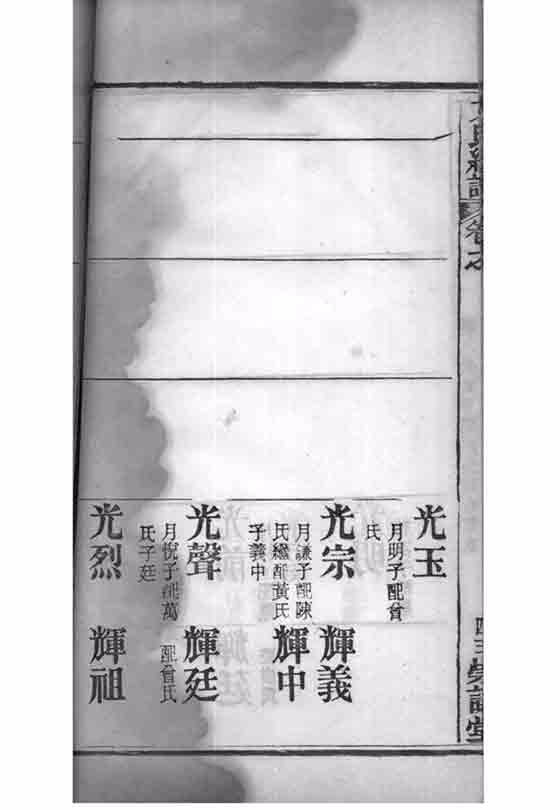 氏續譜
卷七
光玉
月明子配曾
氏
光宗
輝義
月謙子配陳
氏繼配黃氏
子義中
輝中
光聲
輝廷
月悅子配萬
氏子廷
配曾氏
光烈
輝祖